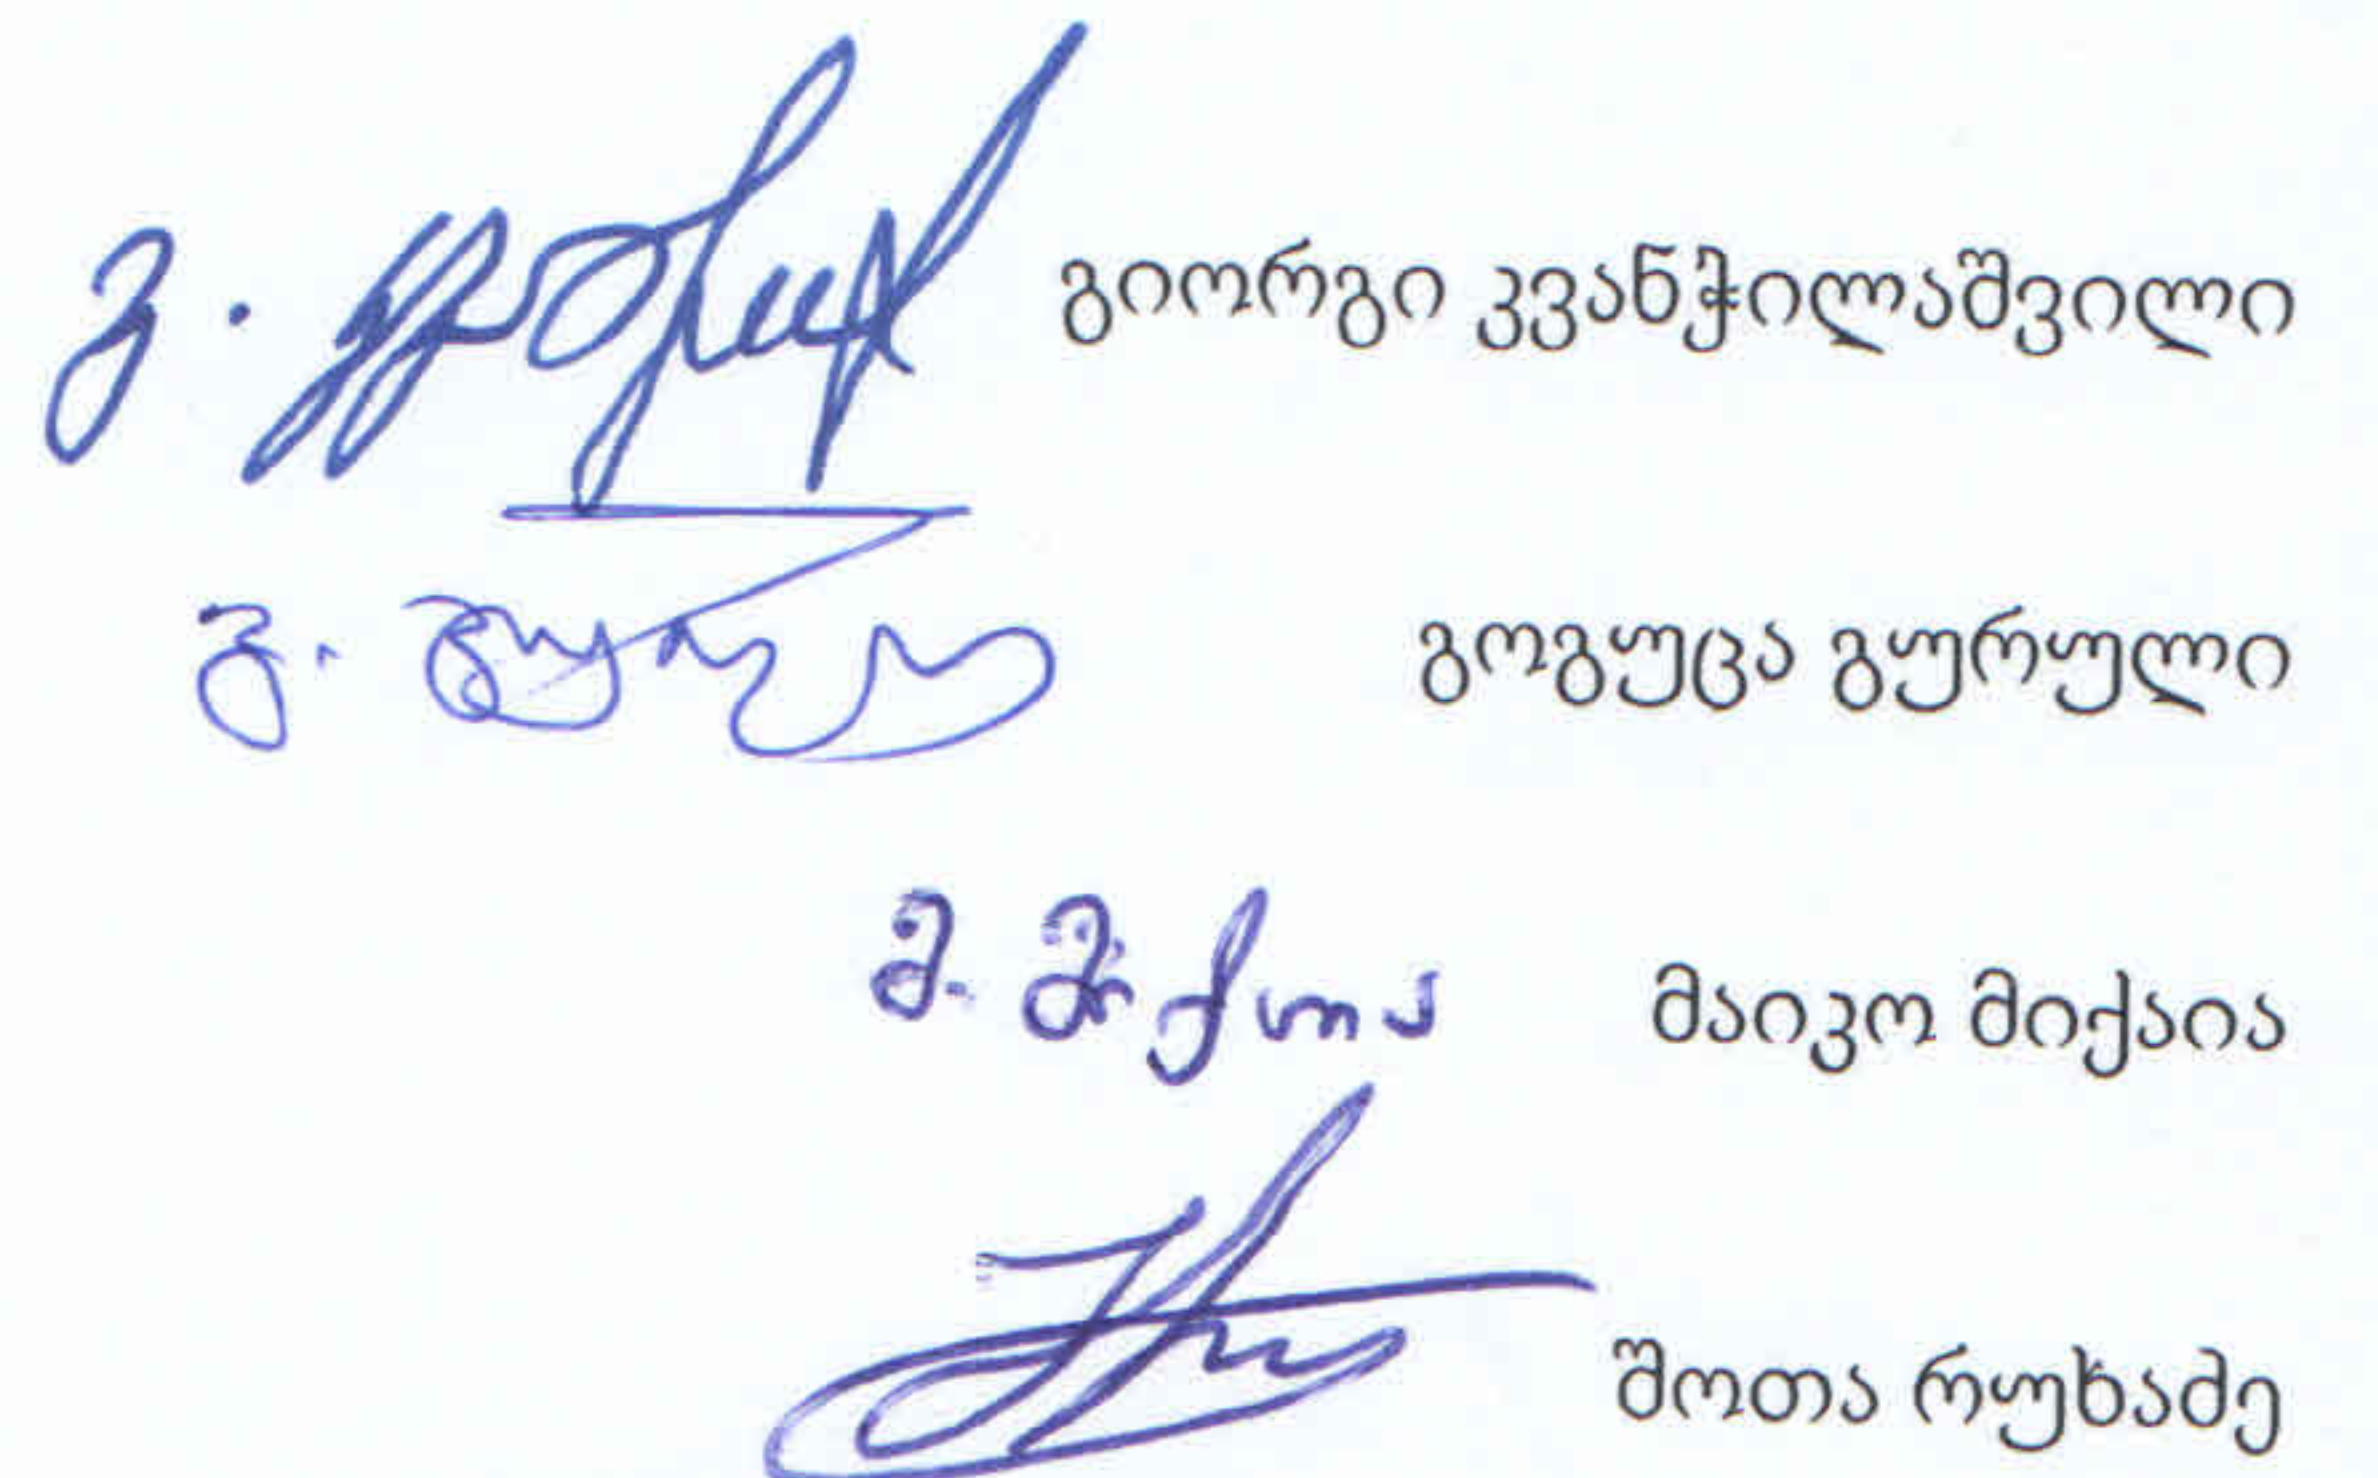 გიორგი კვანჭილაშვილი
გ.
გოგუცა გურული
მ. მიქაია
მაიკო მიქაია
შოთა რუხაძე